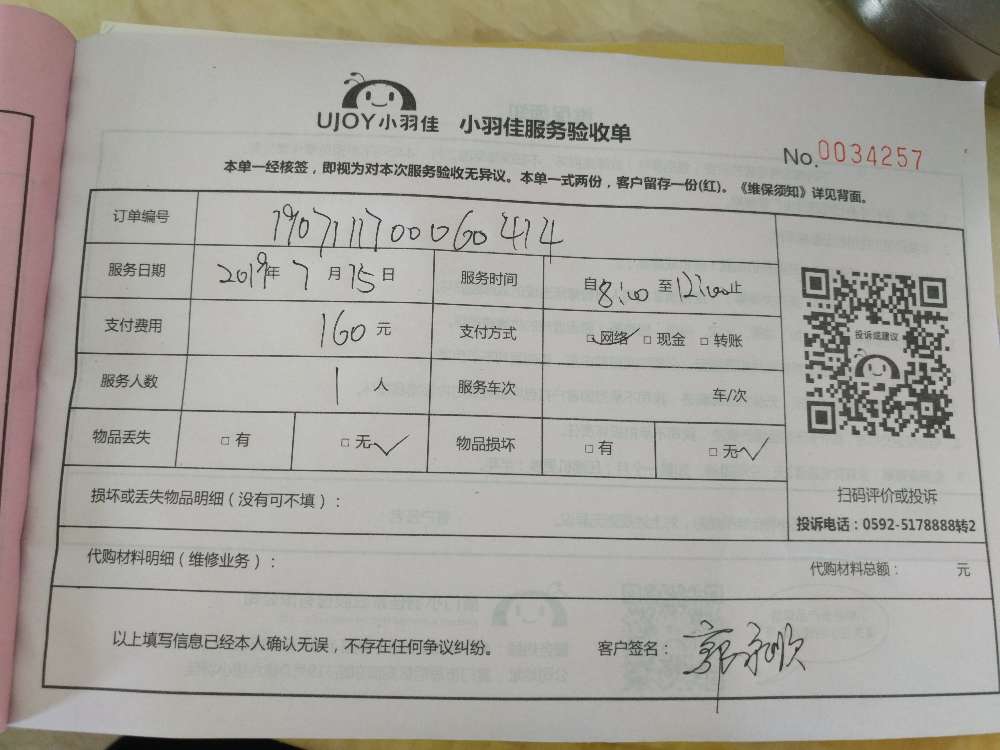 UJOY小羽佳 小羽佳服务验收单
No.0034257
本单一经核签，即视为对本次服务验收无异议。本单一式两份，客户留存一份(红)。《维保须知》详见背面。
订单编号 190711700060414
服务日期 2019年7月15日 服务时间 自8:00至12:00止
支付费用 160元 支付方式 □网络✓ □现金 □转账
服务人数 1人 服务车次 车/次
物品丢失 □有 □无✓ 物品损坏 □有 □无✓
投诉或建议
扫码评价或投诉
投诉电话：0592-5178888转2
损坏或丢失物品明细（没有可不填）：
代购材料明细（维修业务）： 代购材料总额： 元
以上填写信息已经本人确认无误，不存在任何争议纠纷。 客户签名：